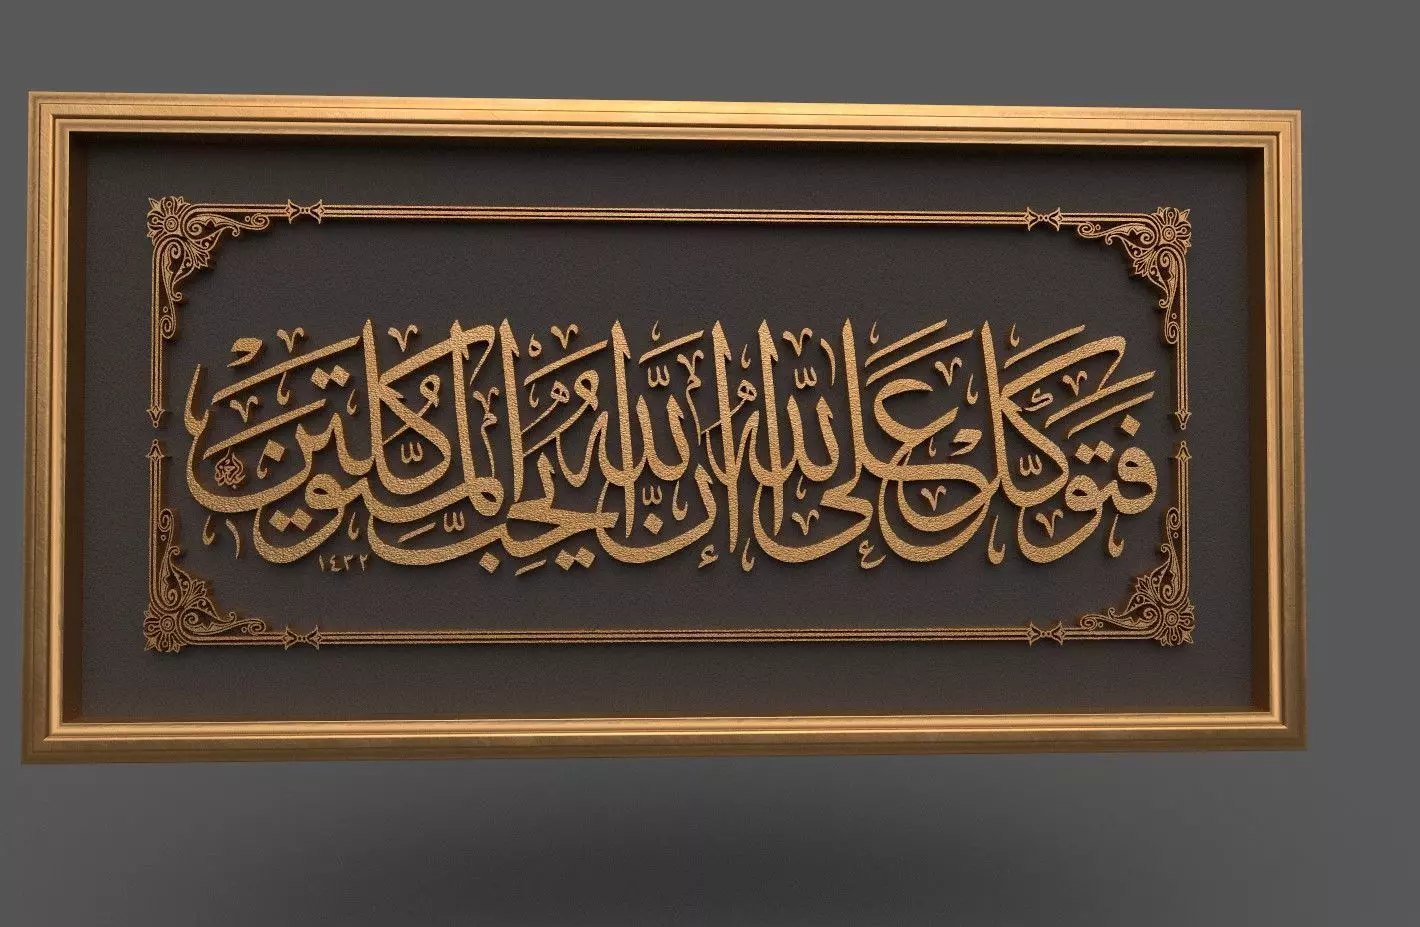 فَتَوَكَّلْ عَلَى اللهِ إِنَّ اللهَ يُحِبُّ الْمُتَوَكِّلِينَ
١٤٣٢